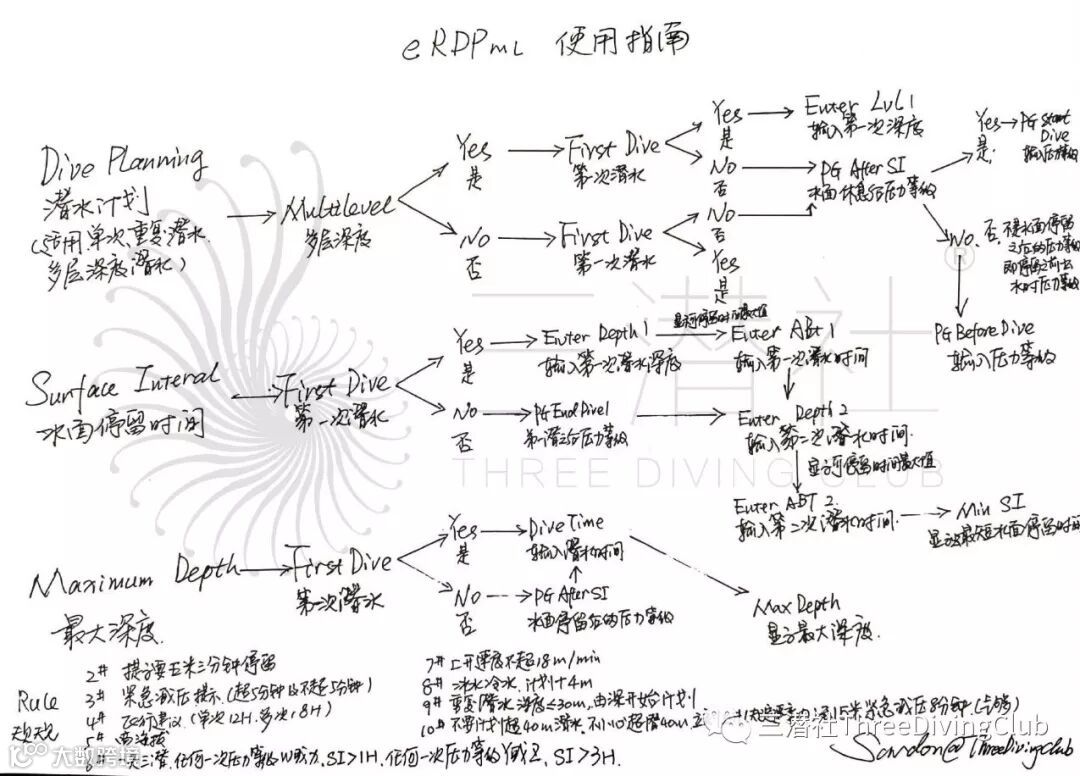 eRDPML 使用指南
Dive Planning
潜水计划
(适用单次,重复潜水
多层深度潜水)
Multilevel
多层深度
Yes
是
First Dive
第一次潜水
Yes
是
Enter Lvl 1
输入第一次深度
No
否
PG After SI
水面休息后压力等级
Yes
是
PG Start
Dive
输入压力等级
No
否
First Dive
第一次潜水
No
否
Yes
是
No
否
PG Before Dive
输入压力等级
Surface Interal
水面停留时间
First Dive
第一次潜水
Yes
是
Enter Depth 1
输入第一次潜水深度
显示停留时间最大值
Enter ABt 1
输入第一次潜水时间
No
否
PG End Dive1
第一潜之后压力等级
Enter Depth 2
输入第二次潜水时间
显示可停留时间最大值
Enter ABT 2
输入第二次潜水时间
Min SI
显示最短水面停留时间
三潜社
®
THREE DIVING CLUB
Maximum Depth
最大深度
First Dive
第一次潜水
Yes
是
Dive Time
输入潜水时间
No
否
PG After SI
水面停留后的压力等级
Max Depth
显示最大深度
Rule
规定
2# 提示要五米三分钟停留
3# 紧急减压提示(超5分钟以不超5分钟)
4# 飞行建议(单次12H.多次18H)
6# 一天三潜.任何一次压力等级W或X.SI>1H.任何一次压力等级Y或Z.SI>3H.
7# 上升速度不超18m/min
8# 冰水冷水.计划+4m
9# 重复潜水深度≤30m,由深开始计划
10# 不要计划超40m潜水.不小心超潜40m
5米紧急减压8分钟
三潜社ThreeDivingClub
Sandon@ThreeDivingClub
大数跨境